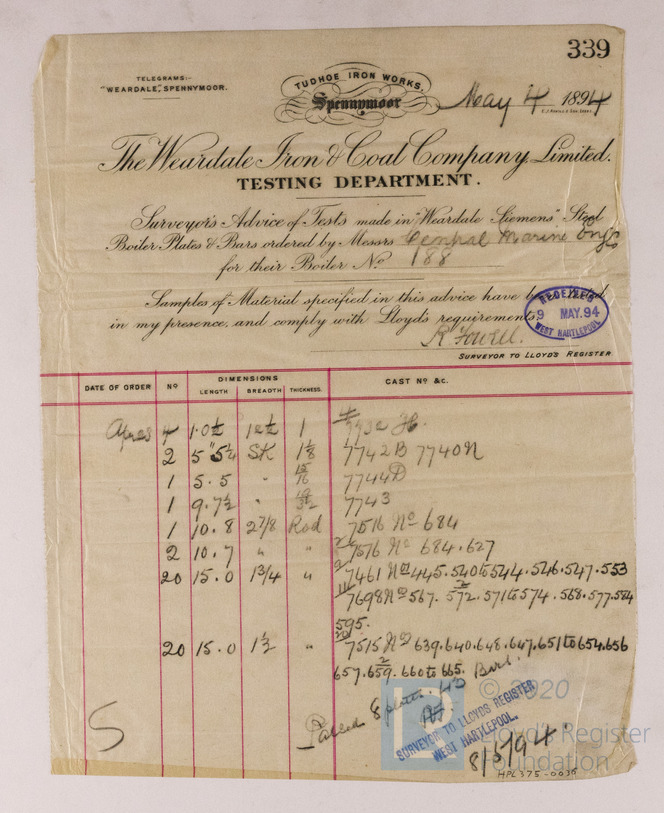 339
TELEGRAMS:-
"WEARDALE", SPENNYMOOR.
TUDHOE IRON WORKS.
Spennymoor
May 4 1894
The Weardale Iron & Coal Company Limited.
TESTING DEPARTMENT.
Surveyor's Advice of Tests made in "Weardale Siemens" Steel
Boiler Plates & Bars ordered by Messrs Central Marine Eng
for their Boiler No 188
Samples of Material specified in this advice have been tested
in my presence, and comply with Lloyd's requirements.
RECEIVED
9 MAY.94
WEST HARTLEPOOL
R Fowell.
SURVEYOR TO LLOYD'S REGISTER
DATE OF ORDER No DIMENSIONS CAST No &c.
LENGTH BREADTH THICKNESS.
4 1.0½ 1
2 5"5½ SK 1⅛ 7742B 7740N
1 5.5 " 7744D
1 9.7½ " 7743
1 10.8 2⅞ Rod 7516 No 684
2 10.7 " " 7516 No 684.627
20 15.0 1¾ " 7461 Nos 445.540to544.546.547.553
7698 Nos 567. 572.571to574.568.577.584
595.
20 15.0 1½ " 7515 Nos 639.640.648.647.651to654.656
657.659.660to665.
8 plates.
SURVEYOR TO LLOYDS REGISTER
WEST HARTLEPOOL.
8/5/94
HPL375-0036
© 2020
Lloyd's Register
Foundation